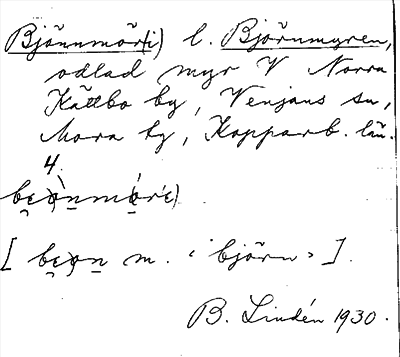 Björnmör(i) l. Björnmyren,
odlad myr V Norra
Kättbo by, Venjans sn,
Mora tg, Kopparb. län.
4.
[ m. "björn" ].
B. Lindén 1930.